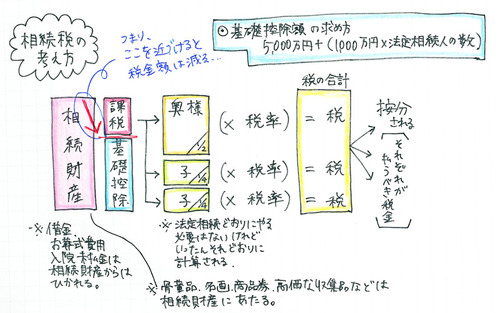 相続税の
考え方
つまり、
ここを近づけると
税金額は減る…
◎基礎控除額の求め方
5,000万円+(1000万円×法定相続人の数)
相続財産
課税
基礎控除
奥様
1/2
(×税率)
=税
子
1/4
(×税率)
=税
子
1/4
(×税率)
=税
税の合計
按分
される
それぞれが
払うべき税金
※借金、
お葬式費用
入院未払金は
相続財産からは
ひかれる。
※法定相続どおりにやる
必要はないけれど
いったんそれどおりに
計算される。
※骨董品、名画、商品券、高価な収集品などは
相続財産にあたる。